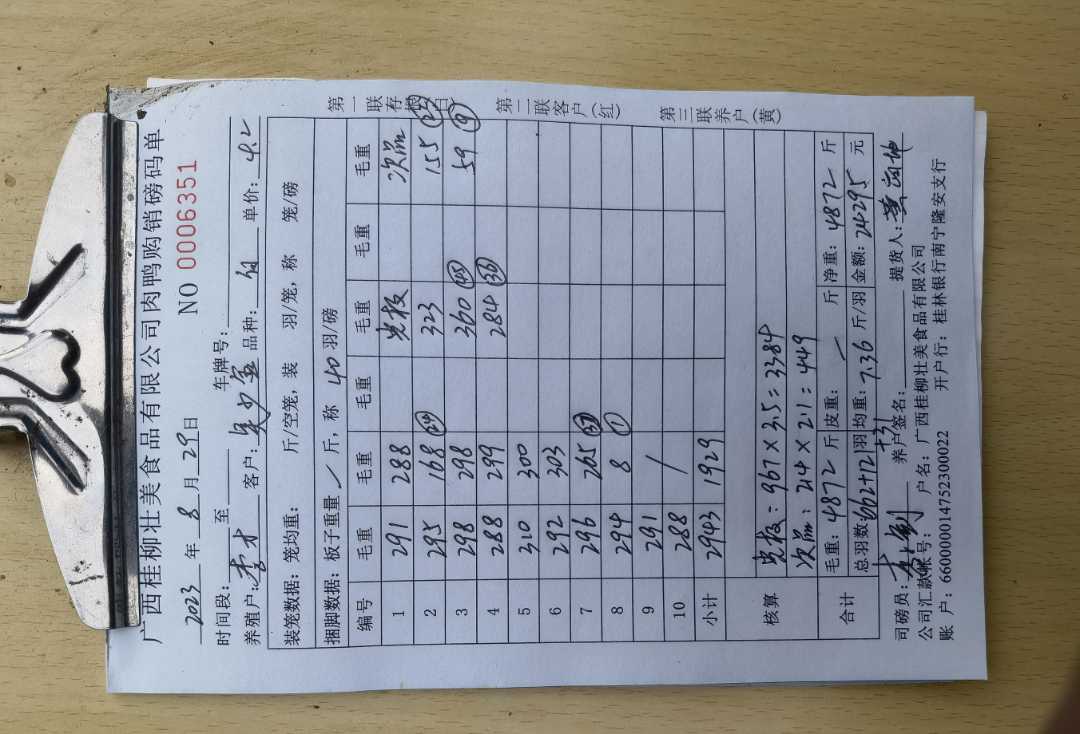 广西桂柳壮美食品有限公司肉鸭购销磅码单
2023 年 8 月 29 日 NO 0006351
时间段： 至 车牌号：
养殖户：李才 客户： 品种： 单价：4.2
装笼数据：笼均重： 斤/空笼，装 羽/笼，称 笼/磅
捆脚数据：板子重量 / 斤，称 40 羽/磅
编号 毛重 毛重 毛重 毛重 毛重 毛重
1 291 288 光板 次品
2 295 168 (24) 323 155 (23)
3 298 298 360 (45) 59 (9)
4 288 299 284 (38)
5 310 300
6 292 303
7 296 265 (37)
8 294 8 (1)
9 291 /
10 288
小计 2943 1929
核算 光板：967×3.5=3384
次品：214×2.1=449
合计 毛重：4872 斤 皮重：/ 斤 净重：4872 斤
总羽数：662+121+31 羽 均重：7.36 斤/羽 金额：24295 元
司磅员： 养户签名： 提货人：
公司汇款帐号： 户名：广西桂柳壮美食品有限公司
账户：660000014752300022 开户行：桂林银行南宁隆安支行
第一联存根（白）
第二联客户（红）
第三联养户（黄）